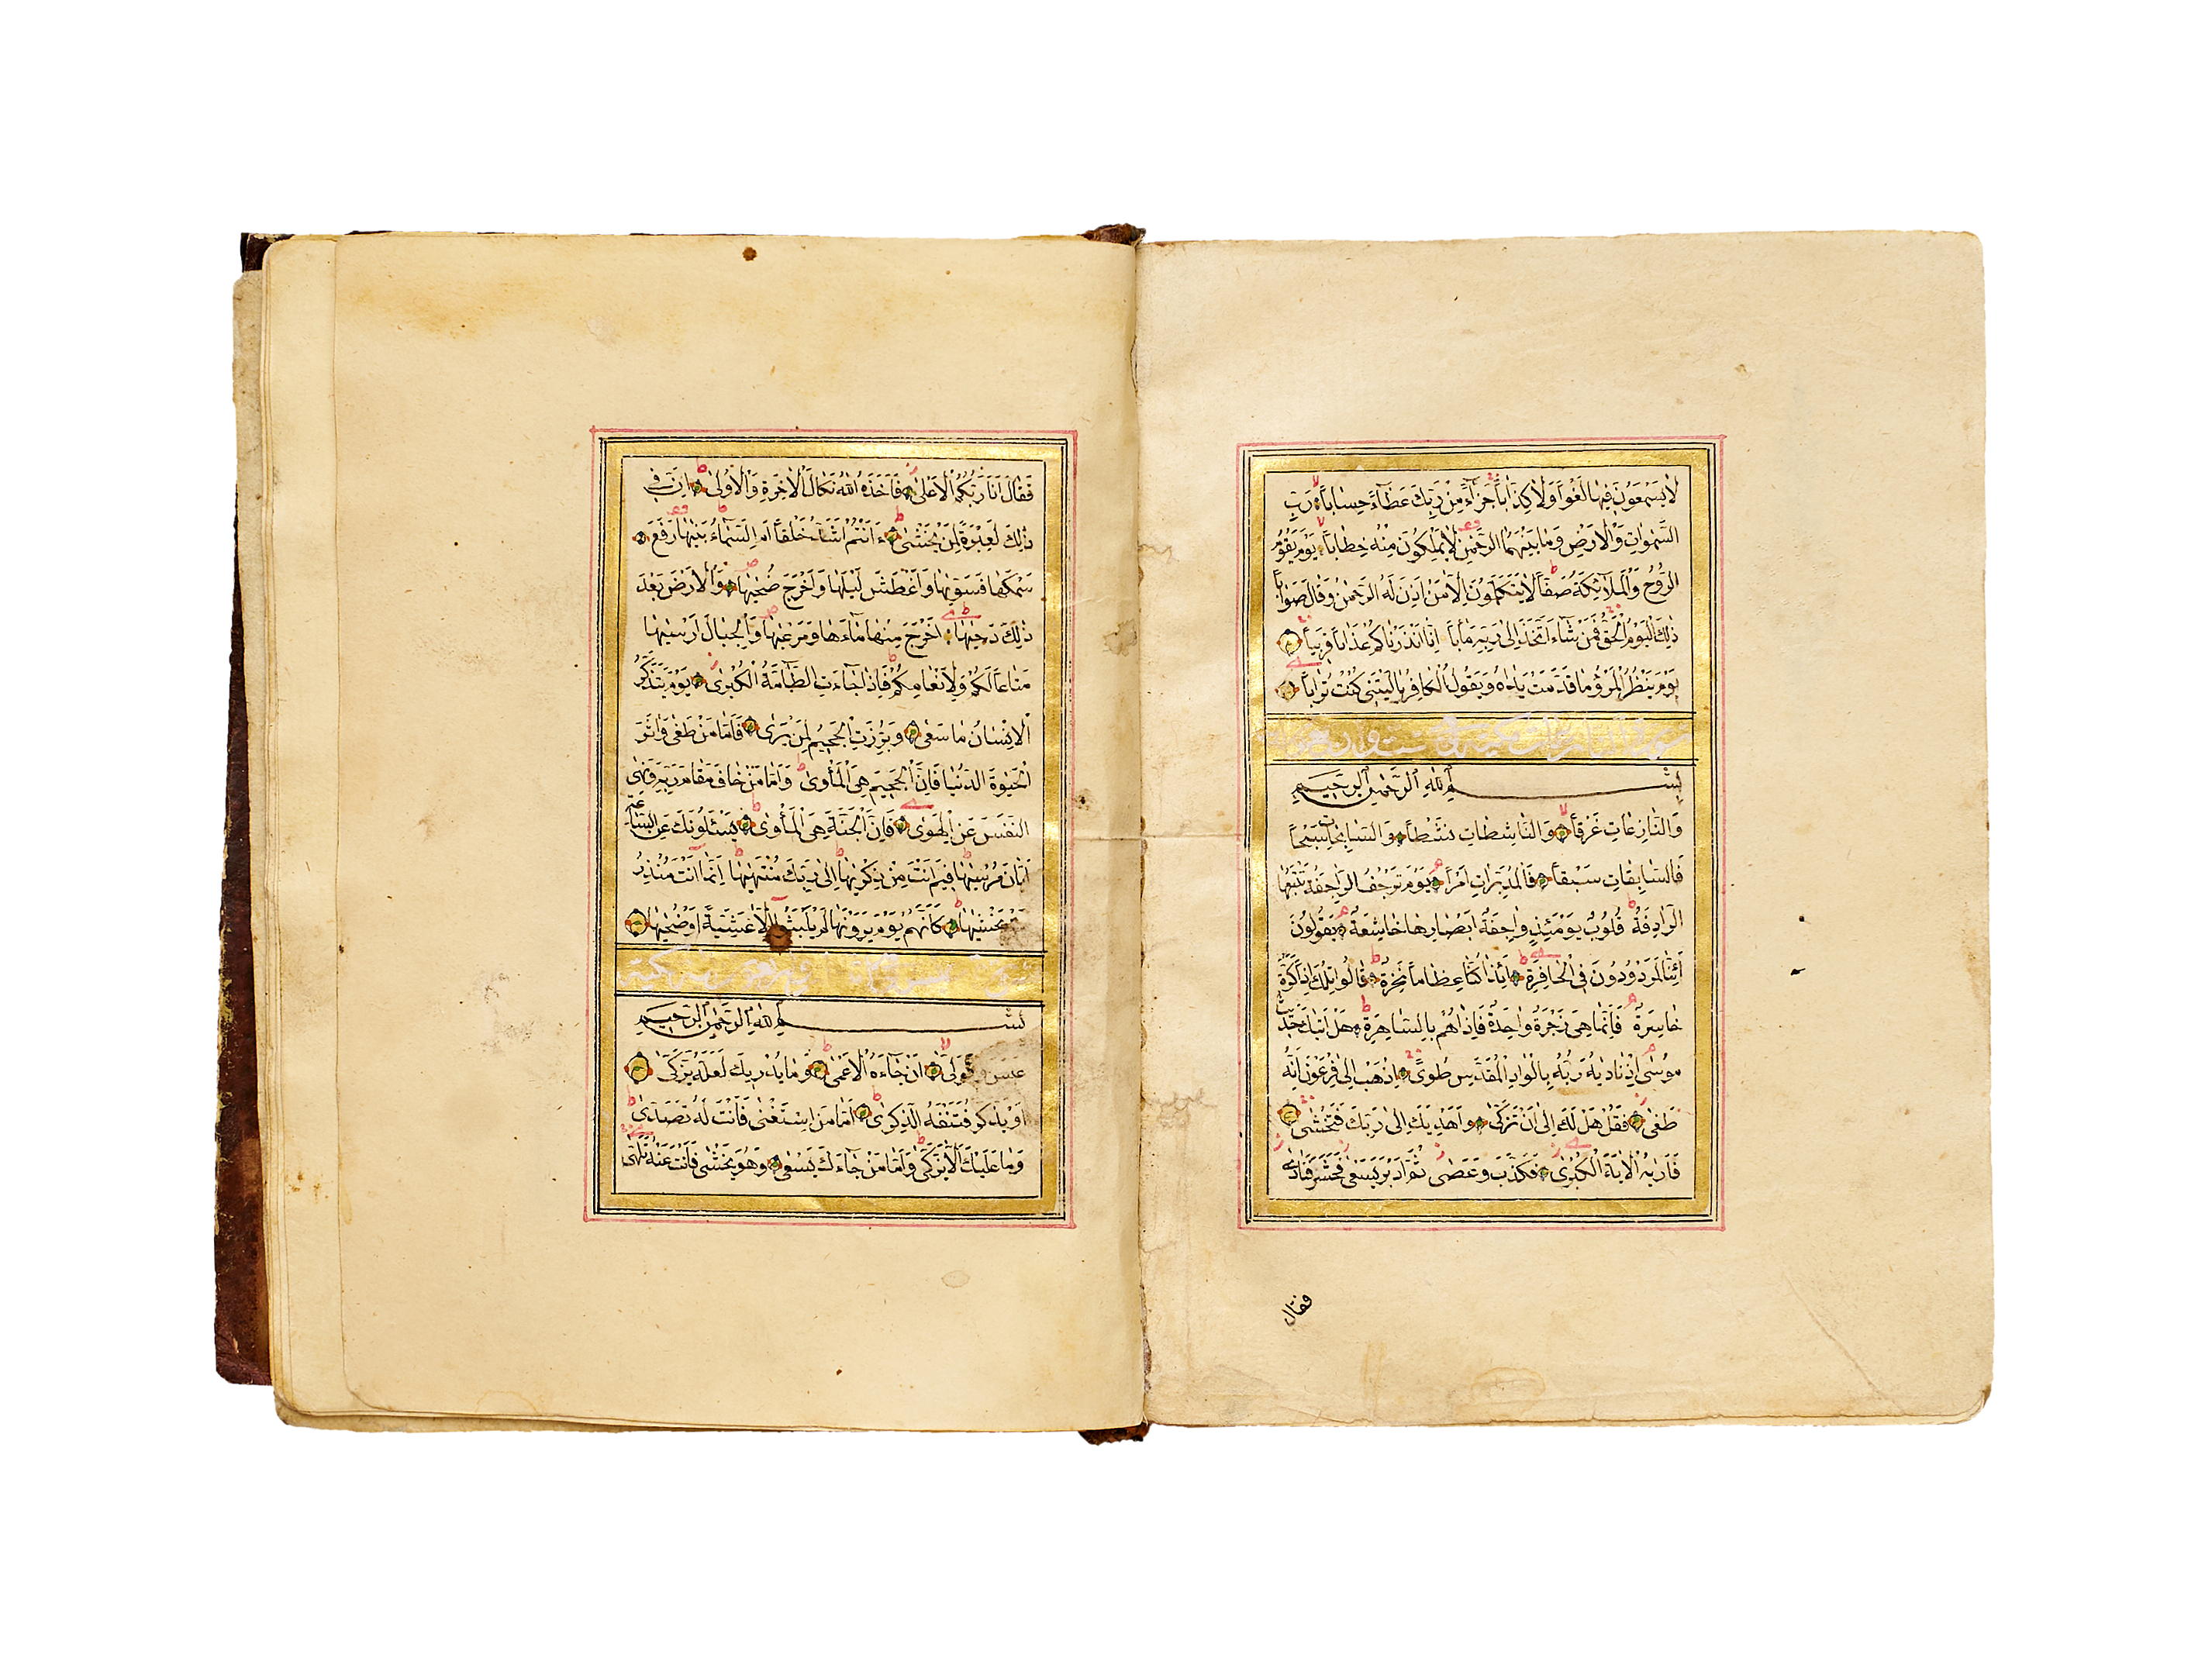 لَا يَسْمَعُونَ فِيهَا لَغْوًا وَلَا كِذَّابًا جَزَاءً مِنْ رَبِّكَ عَطَاءً حِسَابًا رَبِّ
السَّمٰوَاتِ وَالْاَرْضِ وَمَا بَيْنَهُمَا الرَّحْمٰنِ لَا يَمْلِكُونَ مِنْهُ خِطَابًا يَوْمَ يَقُومُ
الرُّوحُ وَالْمَلٰٓئِكَةُ صَفًّا لَا يَتَكَلَّمُونَ اِلَّا مَنْ اَذِنَ لَهُ الرَّحْمٰنُ وَقَالَ صَوَابًا
ذٰلِكَ الْيَوْمُ الْحَقُّ فَمَنْ شَاءَ اتَّخَذَ اِلٰى رَبِّهِ مَاٰبًا اِنَّا اَنْذَرْنَاكُمْ عَذَابًا قَرِيبًا
يَوْمَ يَنْظُرُ الْمَرْءُ مَا قَدَّمَتْ يَدَاهُ وَيَقُولُ الْكَافِرُ يَا لَيْتَنِي كُنْتُ تُرَابًا
بِسْمِ اللّٰهِ الرَّحْمٰنِ الرَّحِيمِ
وَالنَّازِعَاتِ غَرْقًا وَالنَّاشِطَاتِ نَشْطًا وَالسَّابِحَاتِ سَبْحًا
فَالسَّابِقَاتِ سَبْقًا فَالْمُدَبِّرَاتِ اَمْرًا يَوْمَ تَرْجُفُ الرَّاجِفَةُ تَتْبَعُهَا
الرَّادِفَةُ قُلُوبٌ يَوْمَئِذٍ وَاجِفَةٌ اَبْصَارُهَا خَاشِعَةٌ يَقُولُونَ
ءَاِنَّا لَمَرْدُودُونَ فِي الْحَافِرَةِ ءَاِذَا كُنَّا عِظَامًا نَخِرَةً قَالُوا تِلْكَ اِذًا كَرَّةٌ
خَاسِرَةٌ فَاِنَّمَا هِيَ زَجْرَةٌ وَاحِدَةٌ فَاِذَا هُمْ بِالسَّاهِرَةِ هَلْ اَتٰيكَ حَدِيثُ
مُوسٰى اِذْ نَادٰيهُ رَبُّهُ بِالْوَادِ الْمُقَدَّسِ طُوًى اِذْهَبْ اِلٰى فِرْعَوْنَ اِنَّهُ
طَغٰى فَقُلْ هَلْ لَكَ اِلٰى اَنْ تَزَكّٰى وَاَهْدِيَكَ اِلٰى رَبِّكَ فَتَخْشٰى
فَاَرٰيهُ الْاٰيَةَ الْكُبْرٰى فَكَذَّبَ وَعَصٰى ثُمَّ اَدْبَرَ يَسْعٰى فَحَشَرَ فَنَادٰى
فقال
فَقَالَ اَنَا رَبُّكُمُ الْاَعْلٰى فَاَخَذَهُ اللّٰهُ نَكَالَ الْاٰخِرَةِ وَالْاُولٰى اِنَّ فِي
ذٰلِكَ لَعِبْرَةً لِمَنْ يَخْشٰى ءَاَنْتُمْ اَشَدُّ خَلْقًا اَمِ السَّمَاءُ بَنٰيهَا رَفَعَ
سَمْكَهَا فَسَوّٰيهَا وَاَغْطَشَ لَيْلَهَا وَاَخْرَجَ ضُحٰيهَا وَالْاَرْضَ بَعْدَ
ذٰلِكَ دَحٰيهَا اَخْرَجَ مِنْهَا مَاءَهَا وَمَرْعٰيهَا وَالْجِبَالَ اَرْسٰيهَا
مَتَاعًا لَكُمْ وَلِاَنْعَامِكُمْ فَاِذَا جَاءَتِ الطَّامَّةُ الْكُبْرٰى يَوْمَ يَتَذَكَّرُ
الْاِنْسَانُ مَا سَعٰى وَبُرِّزَتِ الْجَحِيمُ لِمَنْ يَرٰى فَاَمَّا مَنْ طَغٰى وَاٰثَرَ
الْحَيٰوةَ الدُّنْيَا فَاِنَّ الْجَحِيمَ هِيَ الْمَأْوٰى وَاَمَّا مَنْ خَافَ مَقَامَ رَبِّهِ وَنَهَى
النَّفْسَ عَنِ الْهَوٰى فَاِنَّ الْجَنَّةَ هِيَ الْمَأْوٰى يَسْئَلُونَكَ عَنِ السَّاعَةِ
اَيَّانَ مُرْسٰيهَا فِيمَ اَنْتَ مِنْ ذِكْرٰيهَا اِلٰى رَبِّكَ مُنْتَهٰيهَا اِنَّمَا اَنْتَ مُنْذِرُ
مَنْ يَخْشٰيهَا كَاَنَّهُمْ يَوْمَ يَرَوْنَهَا لَمْ يَلْبَثُوا اِلَّا عَشِيَّةً اَوْ ضُحٰيهَا
بِسْمِ اللّٰهِ الرَّحْمٰنِ الرَّحِيمِ
عَبَسَ وَتَوَلّٰى اَنْ جَاءَهُ الْاَعْمٰى وَمَا يُدْرِيكَ لَعَلَّهُ يَزَّكّٰى
اَوْ يَذَّكَّرُ فَتَنْفَعَهُ الذِّكْرٰى اَمَّا مَنِ اسْتَغْنٰى فَاَنْتَ لَهُ تَصَدّٰى
وَمَا عَلَيْكَ اَلَّا يَزَّكّٰى وَاَمَّا مَنْ جَاءَكَ يَسْعٰى وَهُوَ يَخْشٰى فَاَنْتَ عَنْهُ تَلَهّٰى